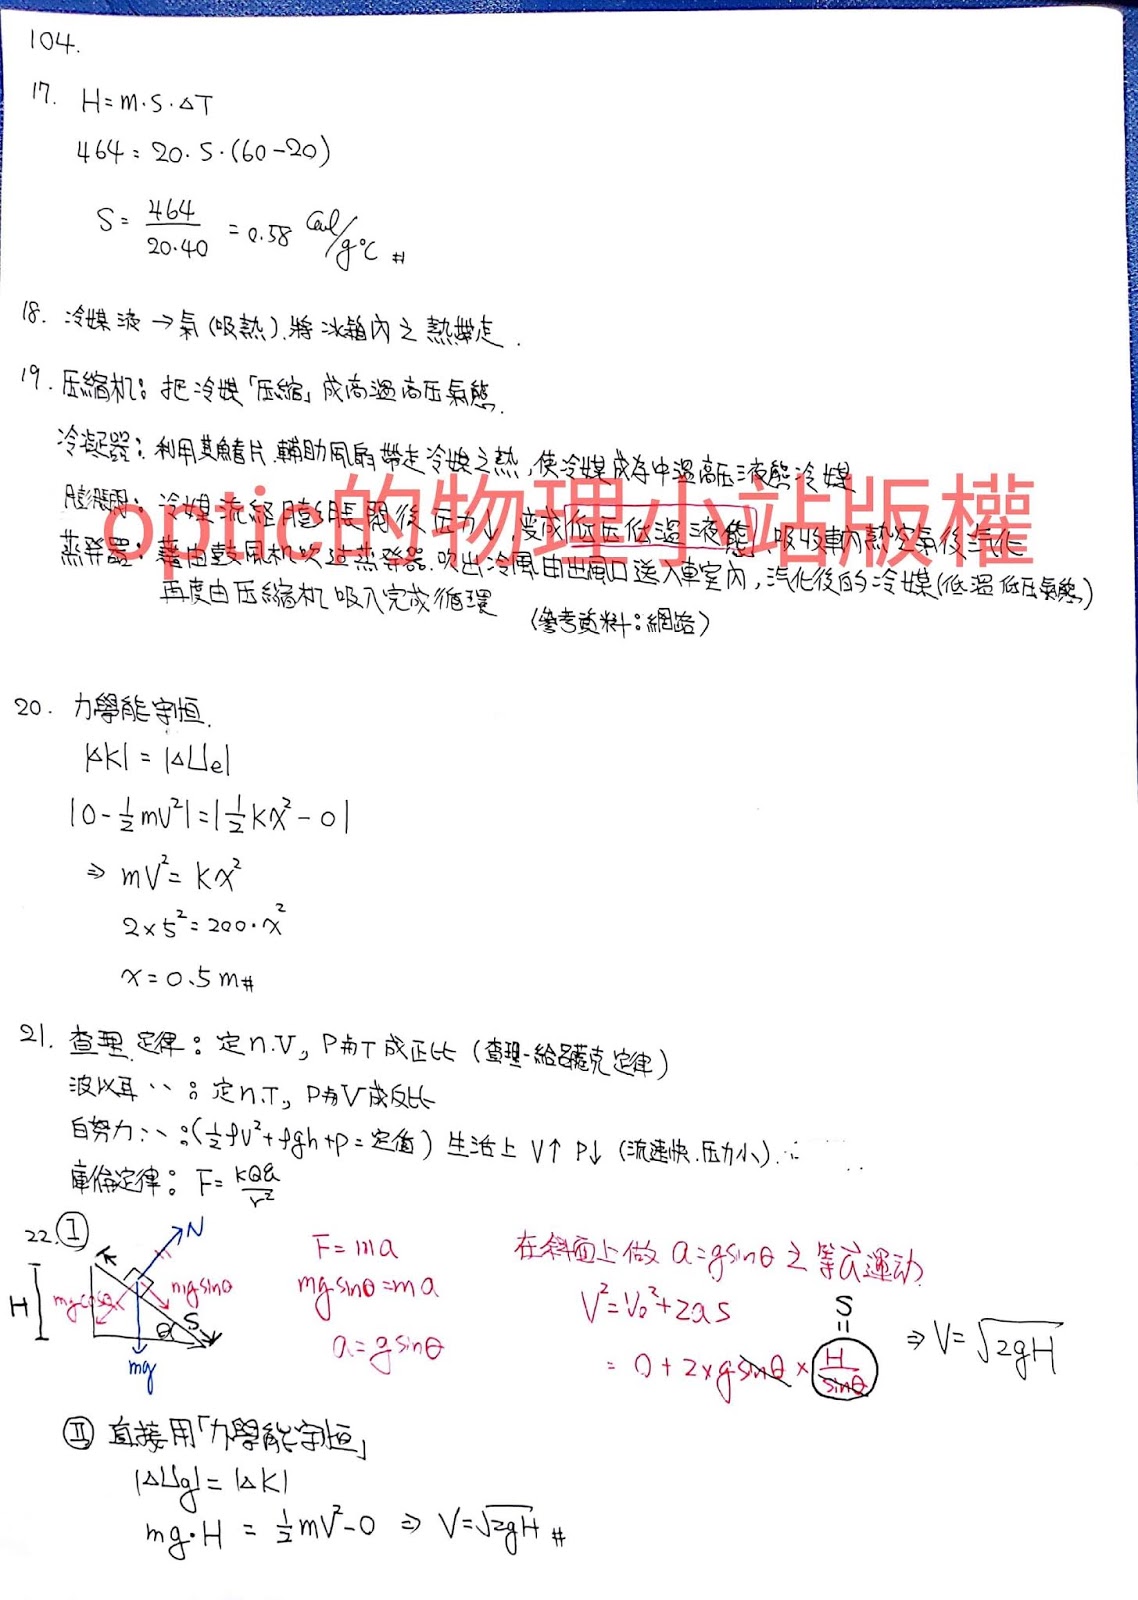 104.
17. H=m·s·△T
464=20·S·(60-20)
S= 464/20·40 =0.58 cal/g°C #
18. 冷媒液→氣(吸熱).將冰箱內之熱帶走.
19. 压縮机: 把冷媒「压縮」成高溫高压氣態.
冷凝器: 利用其鰭片.輔助風扇帶走冷媒之熱,使冷媒成為中溫高压液態冷媒
膨脹閥: 冷媒流經膨脹閥後压力↓,变成低压低溫液態 吸收車內熱空氣後汽化
蒸發器: 藉由鼓風机吹过蒸發器.吹出冷風由出風口送入車室內,汽化後的冷媒(低溫低压氣態)
再度由压縮机吸入完成循環 (參考資料:網路)
optic的物理小站版權
20. 力學能守恒.
|△K|=|△Ue|
|0-½mv²|=|½kx²-0|
⇒ mv²=kx²
2×5²=200·x²
x=0.5m#
21. 查理定律: 定n.V, P与T成正比 (查理-給呂薩克定律)
波以耳〃: 定n.T, P与V成反比
白努力〃:(½ρv²+ρgh+p=定值) 生活上 V↑ P↓ (流速快.压力小).
庫倫定律: F=kQq/r²
22. Ⅰ
N
mgsinθ
mgcosθ
H
S
θ
mg
F=ma
mgsinθ=ma
a=gsinθ
在斜面上做 a=gsinθ之等a運动
V²=V₀²+2as
S
=
= 0+2×gsinθ× H/sinθ ⇒V=√2gH
Ⅱ 直接用「力學能守恒」
|△Ug|=|△K|
mg·H = ½mV²-0 ⇒ V=√2gH #